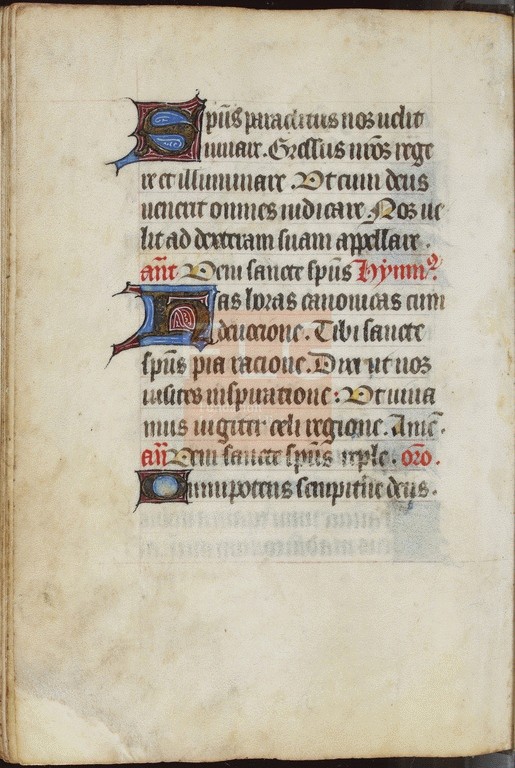 Sp̄us paraclitus nos uelit
iuuare. Gressus nr̄os rege
re et illuminare. Ut cum deus
uenerit omnes iudicare. Nos ue
lit ad dexteram suam appellare.
ant̄ Veni sancte sp̄us Hymnꝰ
Has horas canonicas cum
deuocione. Tibi sancte
sp̄us pia racione. Dixi ut nos
uisites inspiratione: Ut uiua
mus iugiter celi regione. Amē.
an̄ Veni sancte sp̄us reple. oro.
Omnipotens sempit̄ne deus.